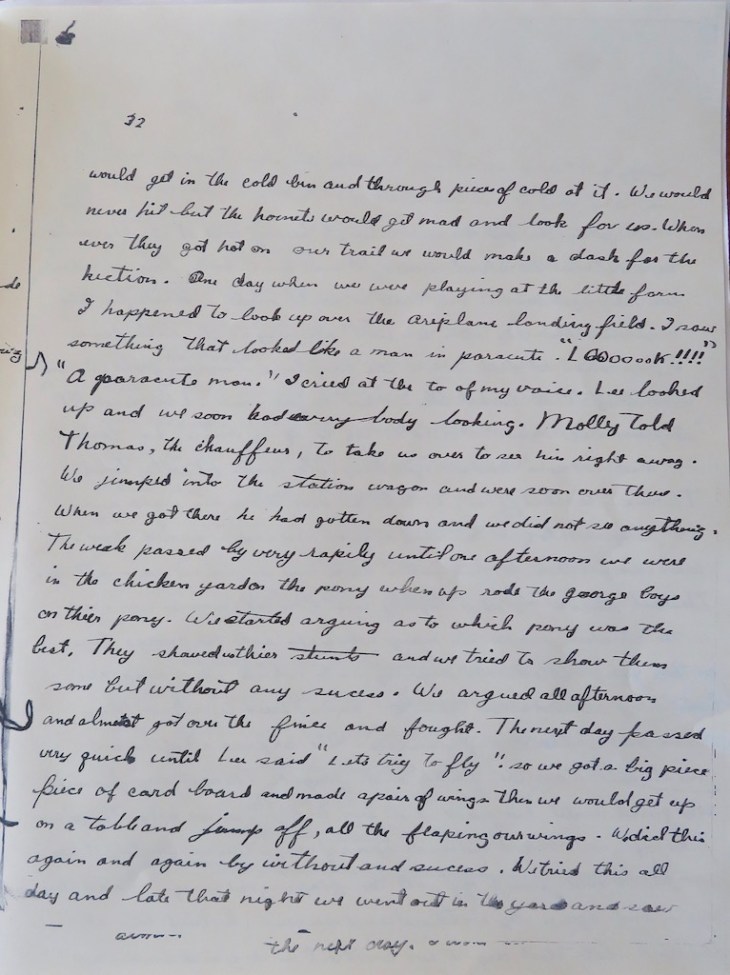 32
would get in the cold bin and through pieces of cold at it. We would
never hit but the hornets would get mad and look for us. When
ever they got hot on our trail we would make a dash for the
kiction. One day when we were playing at the little farm
I happened to look up over the areplane landing field. I saw
something that looked like a man in parscute. "LOOooook!!!!"
"A parascute man." I cried at the to of my voice. Lee looked
up and we soon had every body looking. Molly told
Thomas, the chauffeur, to take us over to see him right away.
We jumped into the station wagon and were soon over there.
When we got there he had gotten down and we did not see anything.
The weak passed by very rapily until one afternoon we were
in the chicken yard on the pony when up rode the george boys
on thier pony. We started arguing as to which pony was the
best. They showed us thier stunts and we tried to show them
some but without any sucess. We argued all afternoon
and almost got over the fince and fought. The next day passed
very quick until Lee said "Lets try to fly". so we got a big piece
piece of card board and made a pair of wings then we would get up
on a table and jump off, all the flaping our wings. We did this
again and again by without and sucess. We tried this all
day and late that night we went out in the yard and saw
the next day.